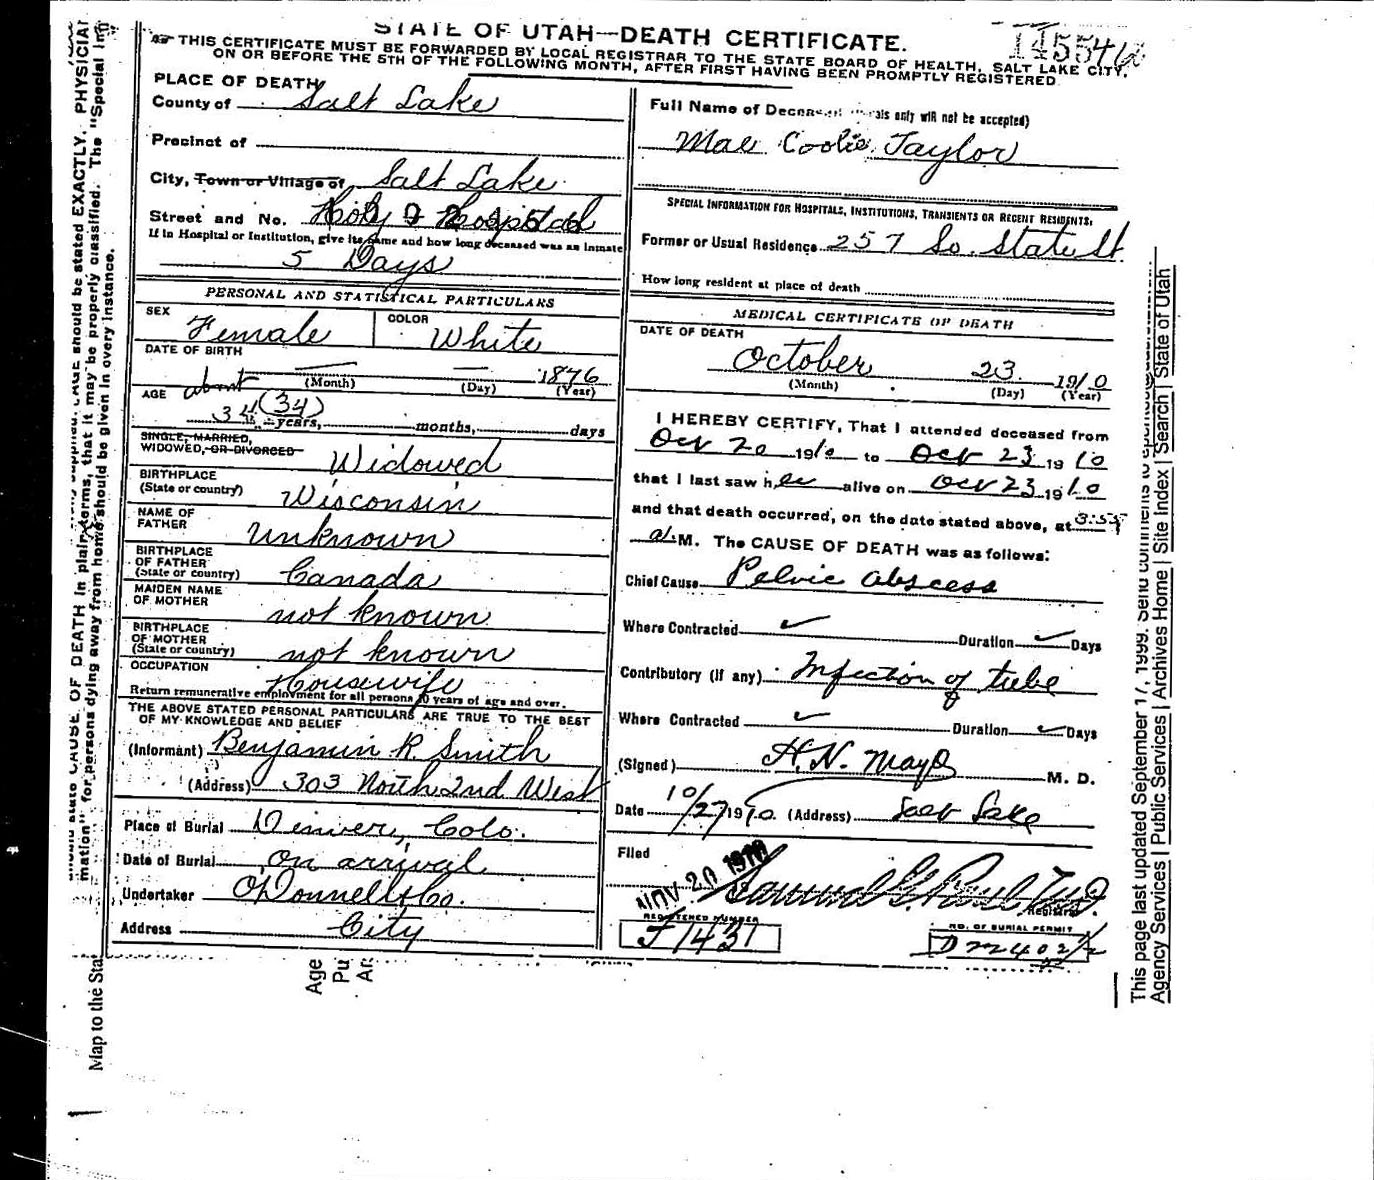 STATE OF UTAH—DEATH CERTIFICATE.
THIS CERTIFICATE MUST BE FORWARDED BY LOCAL REGISTRAR TO THE STATE BOARD OF HEALTH, SALT LAKE CITY,
ON OR BEFORE THE 5TH OF THE FOLLOWING MONTH, AFTER FIRST HAVING BEEN PROMPTLY REGISTERED
PLACE OF DEATH
County of Salt Lake
Precinct of
City, Town or Village of Salt Lake
Street and No. Holy Hospital
If in Hospital or Institution, give its name and how long deceased was an inmate
5 Days
PERSONAL AND STATISTICAL PARTICULARS
SEX Female COLOR White
DATE OF BIRTH
— — 1876
(Month) (Day) (Year)
AGE about
34 (34) years, months, days
SINGLE, MARRIED,
WIDOWED, OR DIVORCED Widowed
BIRTHPLACE
(State or country) Wisconsin
NAME OF
FATHER Unknown
BIRTHPLACE
OF FATHER
(State or country) Canada
MAIDEN NAME
OF MOTHER not known
BIRTHPLACE
OF MOTHER
(State or country) not known
OCCUPATION Housewife
Return remunerative employment for all persons 10 years of age and over.
THE ABOVE STATED PERSONAL PARTICULARS ARE TRUE TO THE BEST
OF MY KNOWLEDGE AND BELIEF
(Informant) Benjamin R. Smith
(Address) 303 North 2nd West
Place of Burial Denver, Colo.
Date of Burial on arrival
Undertaker O'Donnell & Co.
Address City
Full Name of Deceased only will not be accepted)
Mae Coolie Taylor
SPECIAL INFORMATION FOR HOSPITALS, INSTITUTIONS, TRANSIENTS OR RECENT RESIDENTS:
Former or Usual Residence 257 So. State St.
How long resident at place of death
MEDICAL CERTIFICATE OF DEATH
DATE OF DEATH
October 23. 1910
(Month) (Day) (Year)
I HEREBY CERTIFY, That I attended deceased from
Oct 20 1910 to Oct 23 1910
that I last saw her alive on Oct 23 1910
and that death occurred, on the date stated above, at 3:55
a.M. The CAUSE OF DEATH was as follows:
Chief Cause Pelvic abscess
Where Contracted Duration Days
Contributory (if any) Infection of tube
Where Contracted Duration Days
(Signed) H.N. Mayo M. D.
Date 10/27 1910 (Address) Salt Lake
Filed
NOV 20 1910
Registrar
REGISTERED NUMBER
F1431
NO. OF BURIAL PERMIT
should state CAUSE OF DEATH in plain terms, that it may be properly classified. The "Special
mation" for persons dying away from home should be given in every instance.
Map to the Sta
Age
Pu
Ar
This page last updated September 17, 1999. Send comments to
Agency Services | Public Services | Archives Home | Site Index | Search | State of Utah